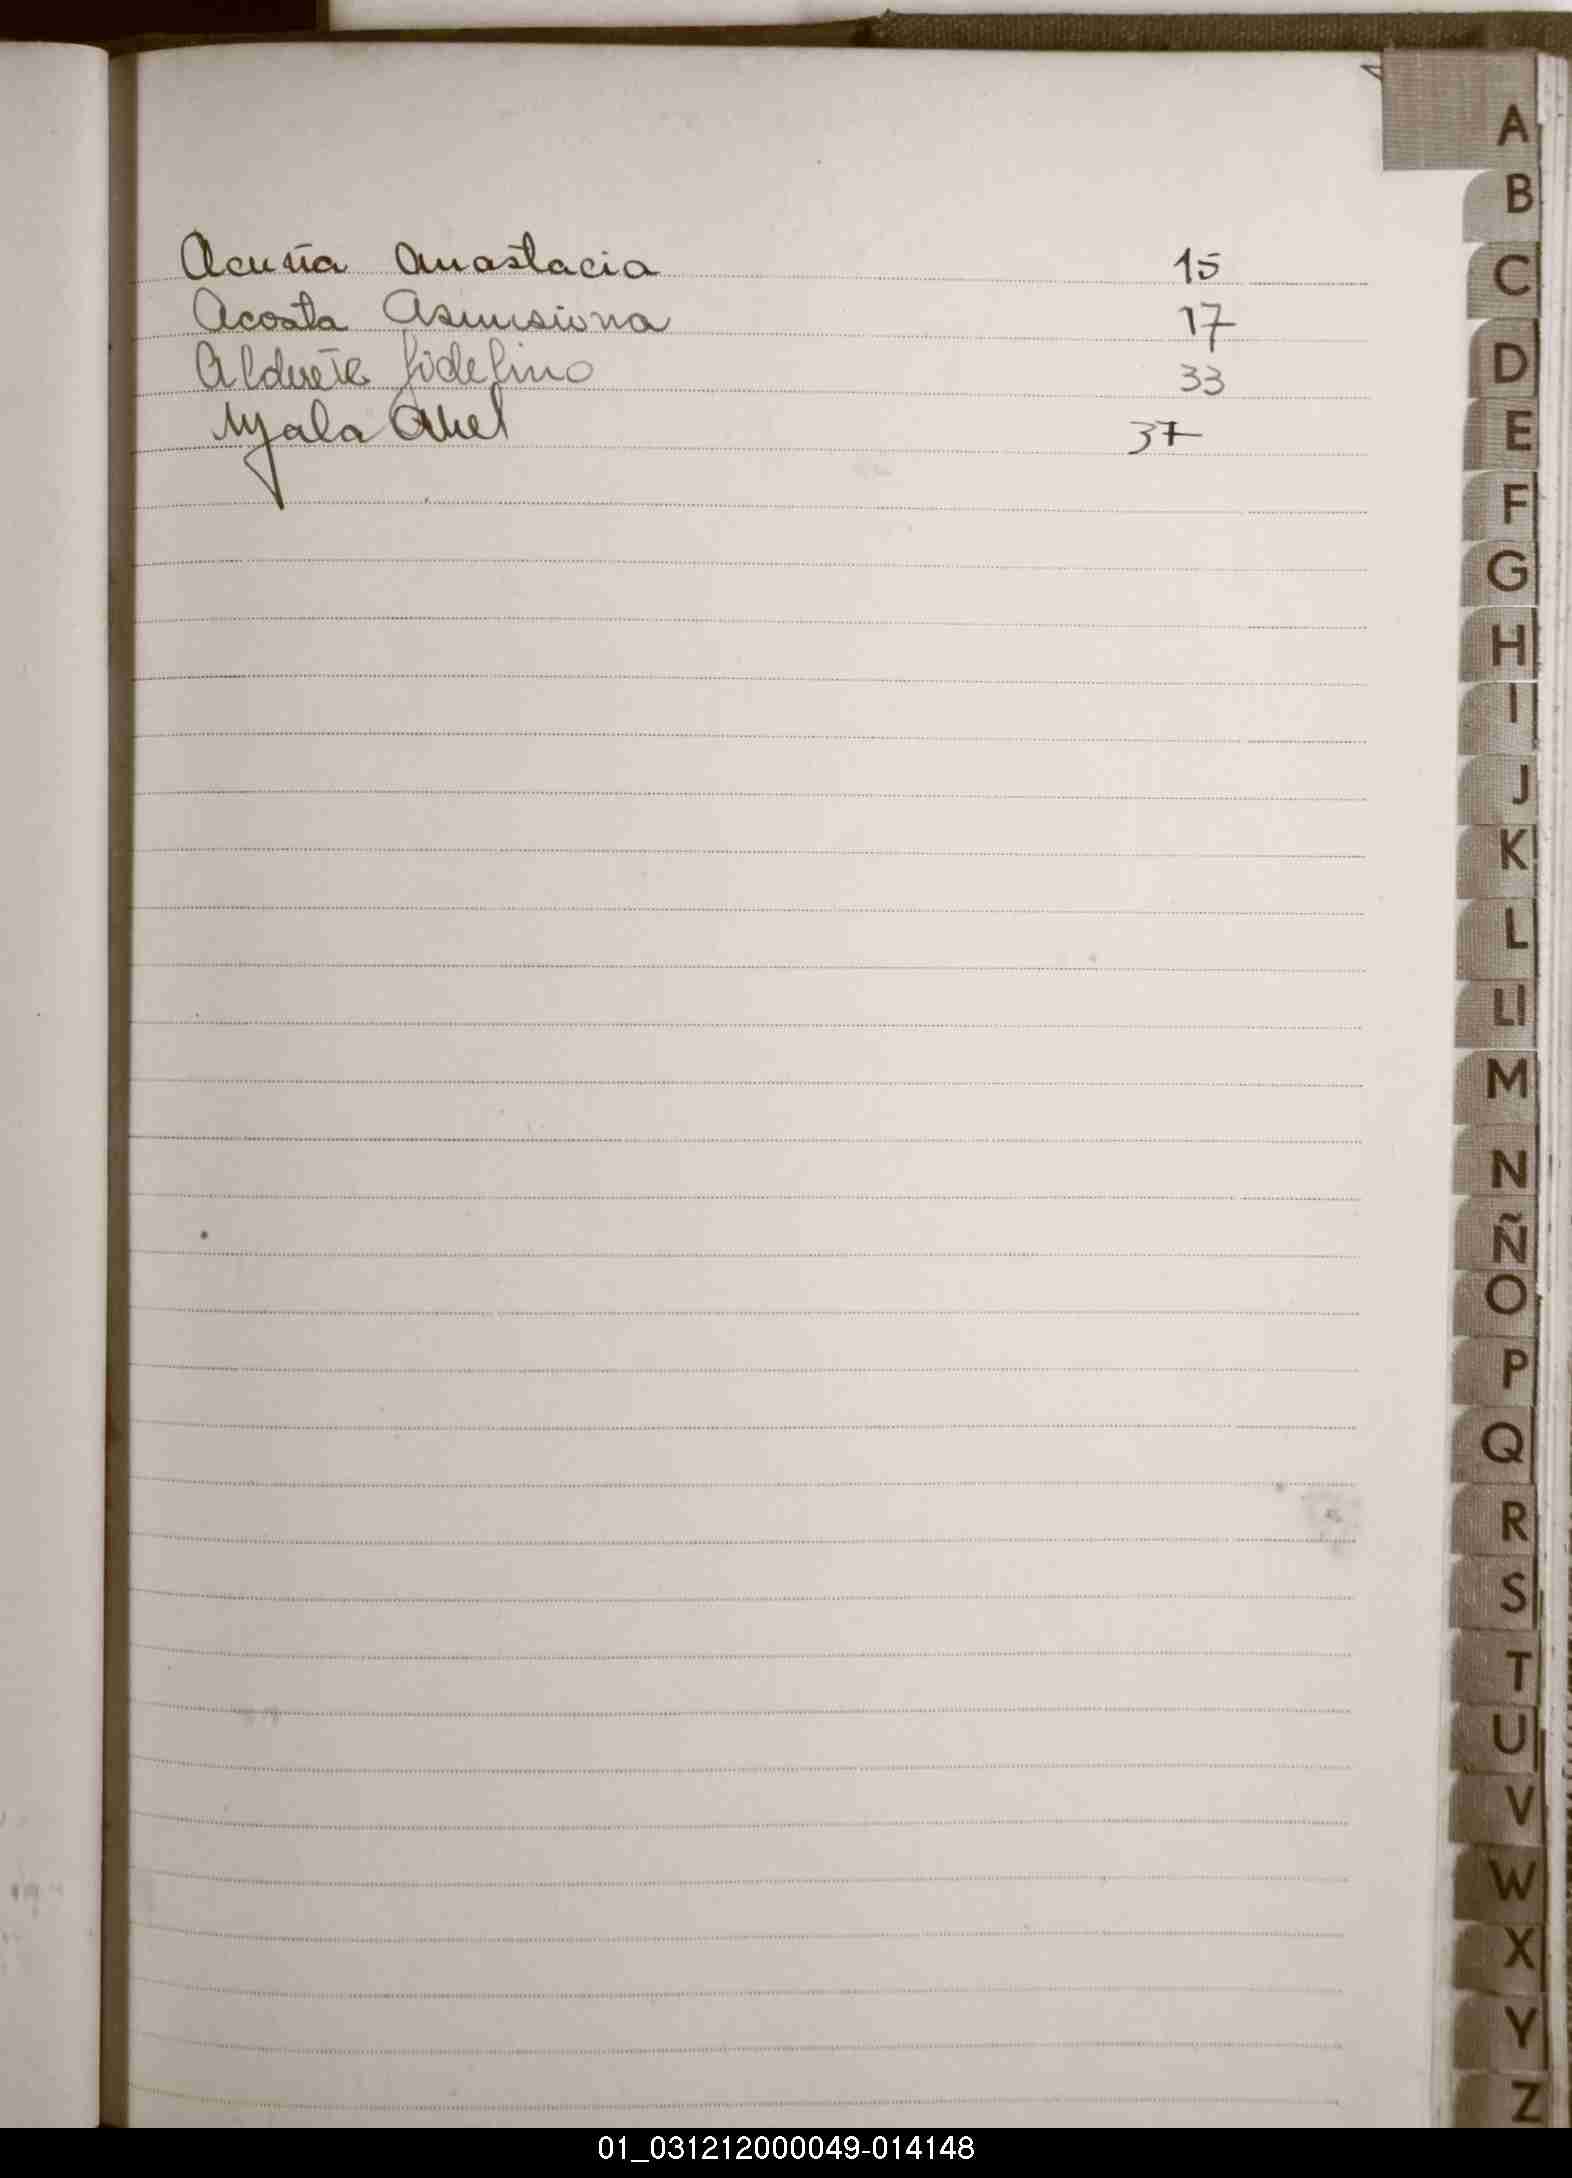 Acuña Anastacia 15
Acosta Asunsiona 17
Alderete fidelino 33
Ayala Abel 37
A
B
C
D
E
F
G
H
I
J
K
L
Ll
M
N
Ñ
O
P
Q
R
S
T
U
V
W
X
Y
Z
01_031212000049-014148